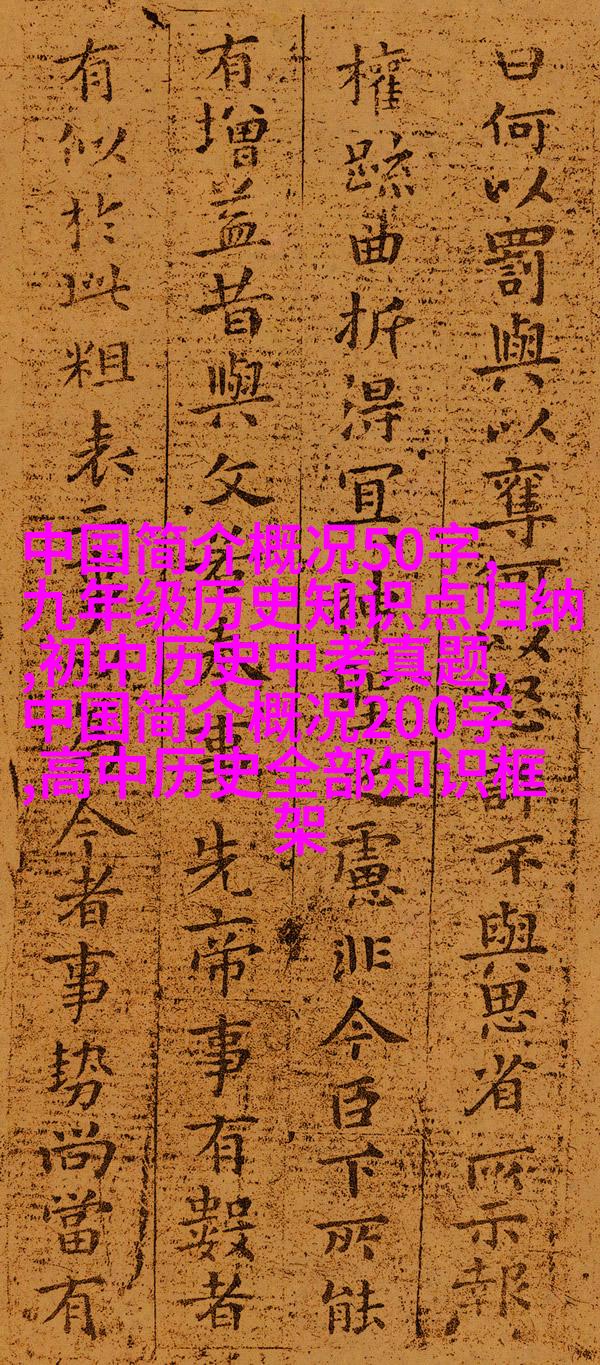 曰何以罰與以奪何以怒許不與思省所示報
權疏曲折得宜神聖之慮非今臣下所能
有增益昔與文若奉事先帝事有數者
有似於此粗表二今者事勢尚當有
中国简介概况50字,
九年级历史知识点归纳
,初中历史中考真题,
中国简介概况200字
,高中历史全部知识框
架